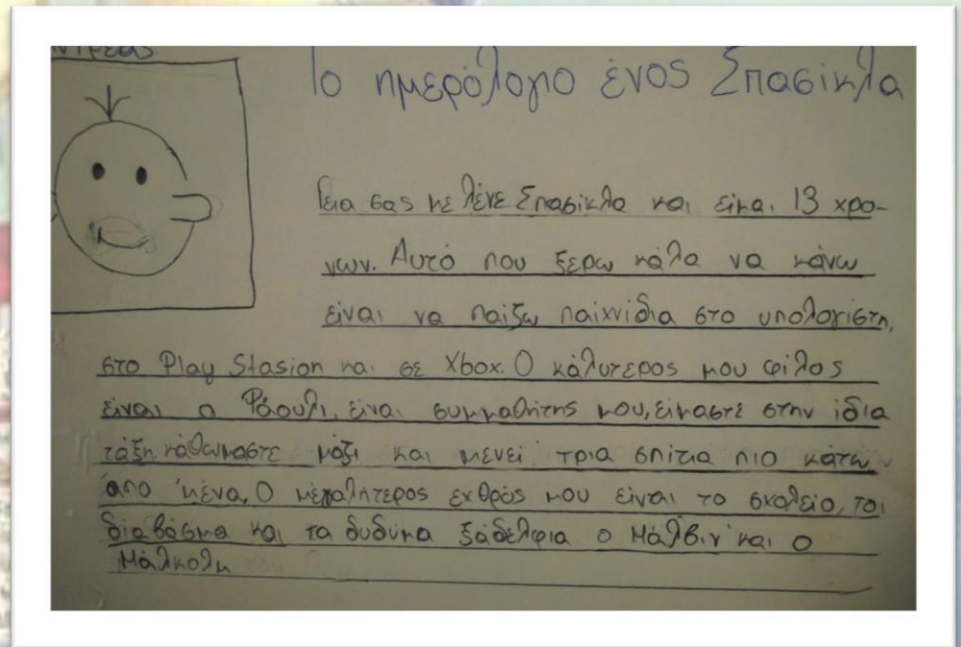 Το ημερόλογιο ένος Σπασίκλα
Γεια σας με λένε Σπασίκλα και είμαι 13 χρο-
νων. Αυτό που ξερω κάλα να κάνω
είναι να παίζω παίχνίδια στο υπολογίστη,
στο Play Stasion και σε Xbox. Ο κάλυτερος μου φίλος
είναι ο Ράουλι, είναι συμμαθήτης μου, είμαστε στην ίδια
τάξη, κάθωμαστε μάζι και μενεί τρια σπίτια πιο κάτω
απο 'μένα. Ο μέγαλήτερος εχθρός μου είναι το σχολείο, το
διαβάσμα και τα δυδύμα ξάδελφια ο Μάλβιν και ο
Μάλκολμ